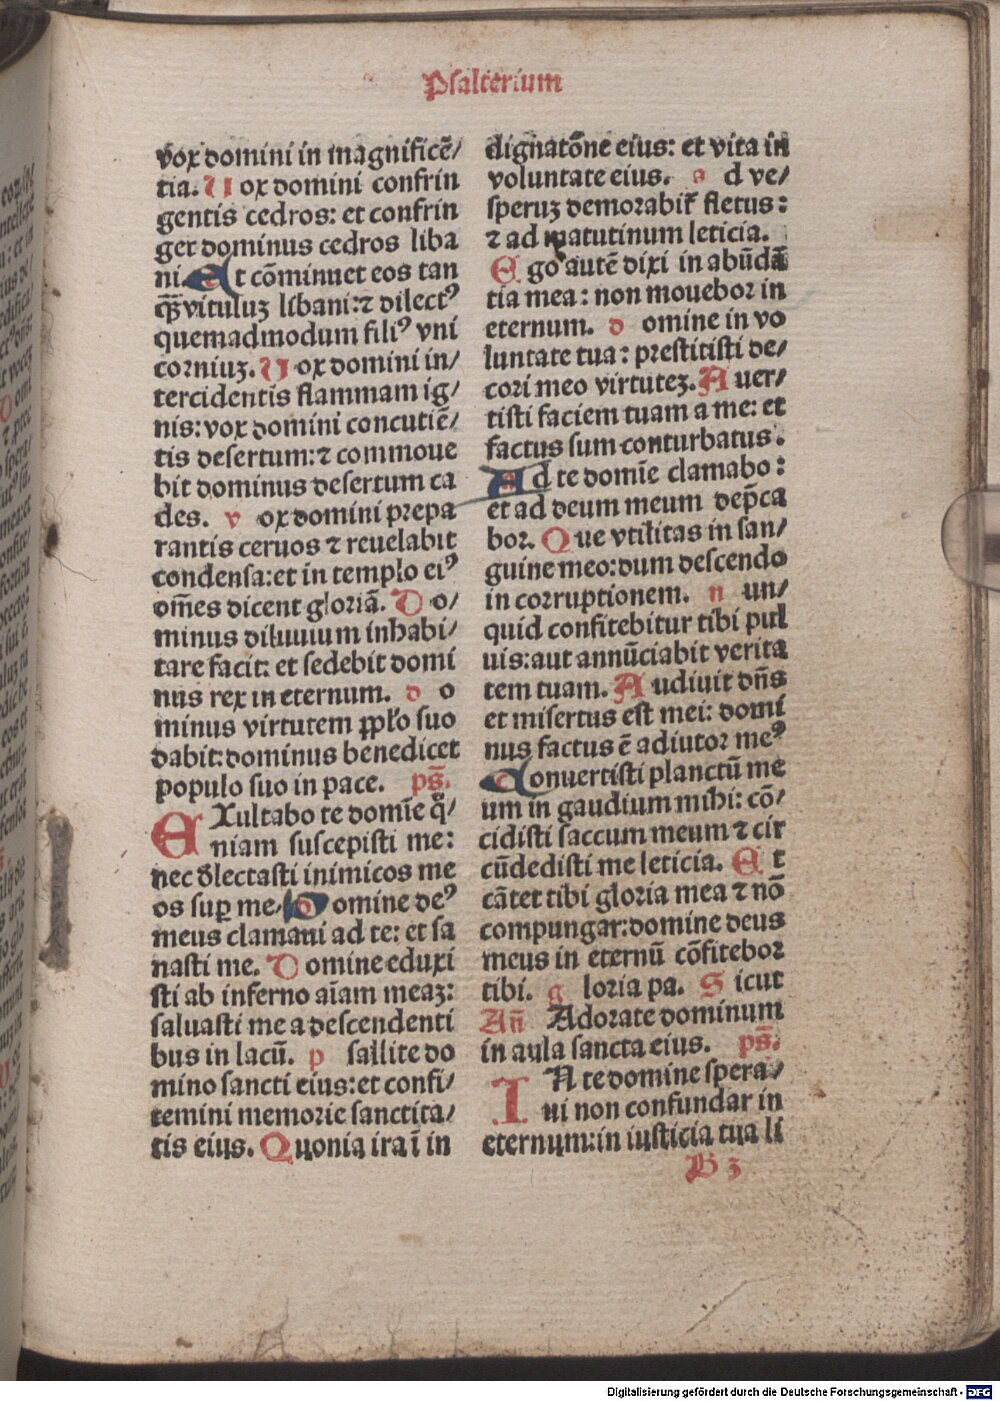 Psalterium
vox domini in magnificē/
tia. Uox domini confrin
gentis cedros: et confrin
get dominus cedros liba
ni. Et cōminuet eos tan
q̄ꝫ vituluꝫ libani: ⁊ dilectꝰ
quemadmodum filiꝰ vni
corniuꝫ. Uox domini in/
tercidentis flammam ig/
nis: vox domini concutiē/
tis desertum: ⁊ commoue
bit dominus desertum ca
des. vox domini prepa
rantis ceruos ⁊ reuelabit
condensa: et in templo eiꝰ
om̄es dicent gloriā. Do/
minus diluuium inhabi/
tare facit: et sedebit domi
nus rex in eternum. do
minus virtutem pplo suo
dabit: dominus benedicet
populo suo in pace. ps̄.
EXultabo te domīe q̄/
niam suscepisti me:
nec delectasti inimicos me
os suꝑ me. Domine deꝰ
meus clamaui ad te: et sa
nasti me. Domine eduxi
sti ab inferno aīam meaꝫ:
saluasti me a descendenti
bus in lacū. psallite do
mino sancti eius: et confi/
temini memorie sanctita/
tis eius. Quonia ira ī in
dignatōne eius: et vita in
voluntate eius. ad ve/
speruꝫ demorabit̄ fletus:
⁊ ad matutinum leticia.
Ego autē dixi in abūdā
tia mea: non mouebor in
eternum. domine in vo
luntate tua: prestitisti de/
cori meo virtuteꝫ. Auer/
tisti faciem tuam a me: et
factus sum conturbatus.
Ad te domīe clamabo:
et ad deum meum dep̄ca
bor. Que vtilitas in san/
guine meo: dum descendo
in corruptionem. nun/
quid confitebitur tibi pul
uis: aut annūciabit verita
tem tuam. Audiuit dn̄s
et misertus est mei: domi
nus factus ē adiutor meꝰ
Conuertisti planctū me
um in gaudium mihi: cō/
cidisti saccum meum ⁊ cir
cūdedisti me leticia. Et
cātet tibi gloria mea ⁊ nō
compungar: domine deus
meus in eternū cōfitebor
tibi. gloria pa. Sicut
An̄ Adorate dominum
in aula sancta eius. ps̄.
IN te domine spera/
ui non confundar in
eternum: in iusticia tua li
B 3
Digitalisierung gefördert durch die Deutsche Forschungsgemeinschaft - DFG